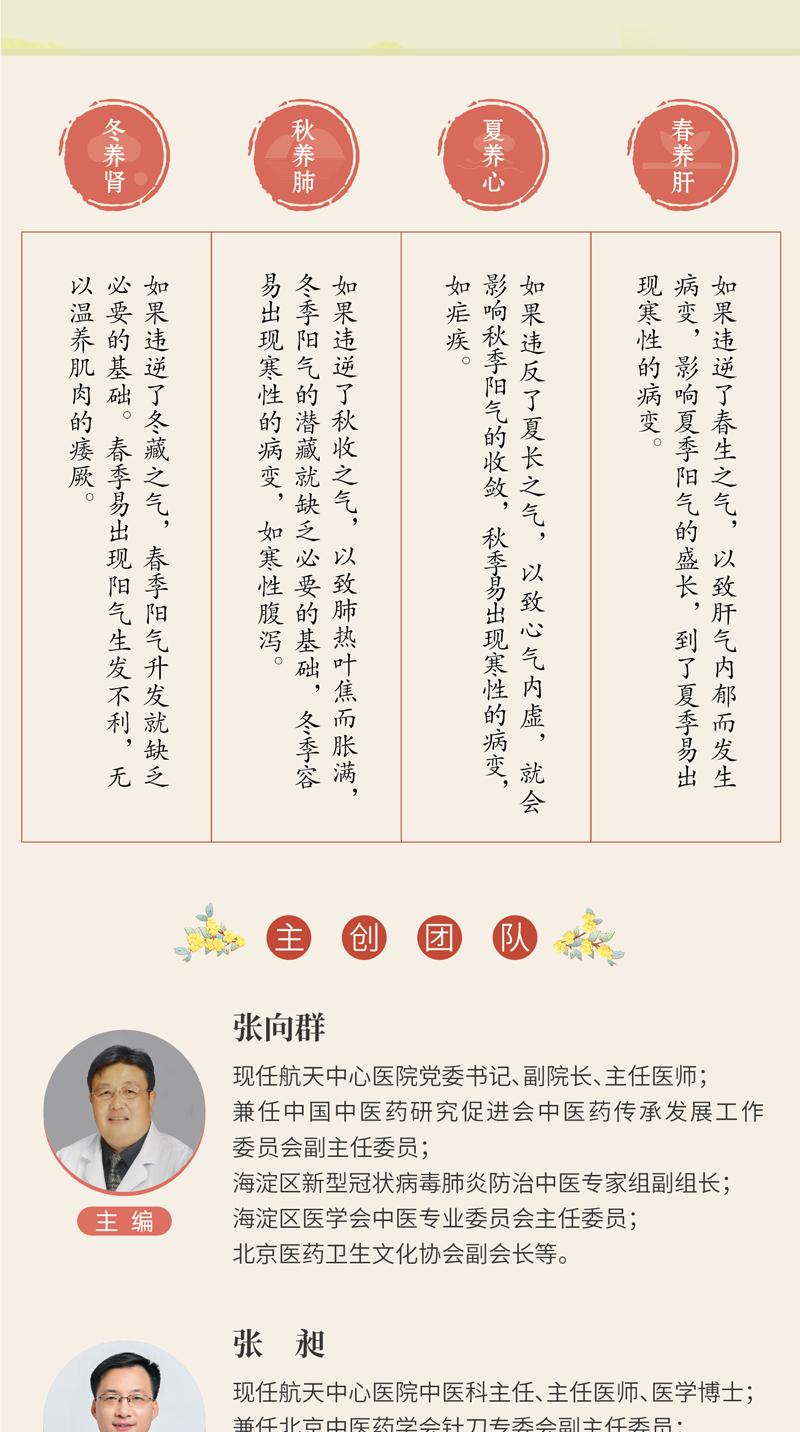 春养肝
如果违逆了春生之气，以致肝气内郁而发生
病变，影响夏季阳气的盛长，到了夏季易出
现寒性的病变。
夏养心
如果违反了夏长之气，以致心气内虚，就会
影响秋季阳气的收敛，秋季易出现寒性的病变，
如疟疾。
秋养肺
如果违逆了秋收之气，以致肺热叶焦而胀满，
冬季阳气的潜藏就缺乏必要的基础，冬季容
易出现寒性的病变，如寒性腹泻。
冬养肾
如果违逆了冬藏之气，春季阳气升发就缺乏
必要的基础。春季易出现阳气生发不利，无
以温养肌肉的痿厥。
主创团队
张向群
现任航天中心医院党委书记、副院长、主任医师；
兼任中国中医药研究促进会中医药传承发展工作
委员会副主任委员；
海淀区新型冠状病毒肺炎防治中医专家组副组长；
海淀区医学会中医专业委员会主任委员；
北京医药卫生文化协会副会长等。
主编
张 昶
现任航天中心医院中医科主任、主任医师、医学博士；
兼任北京中医药学会针刀专委会副主任委员；